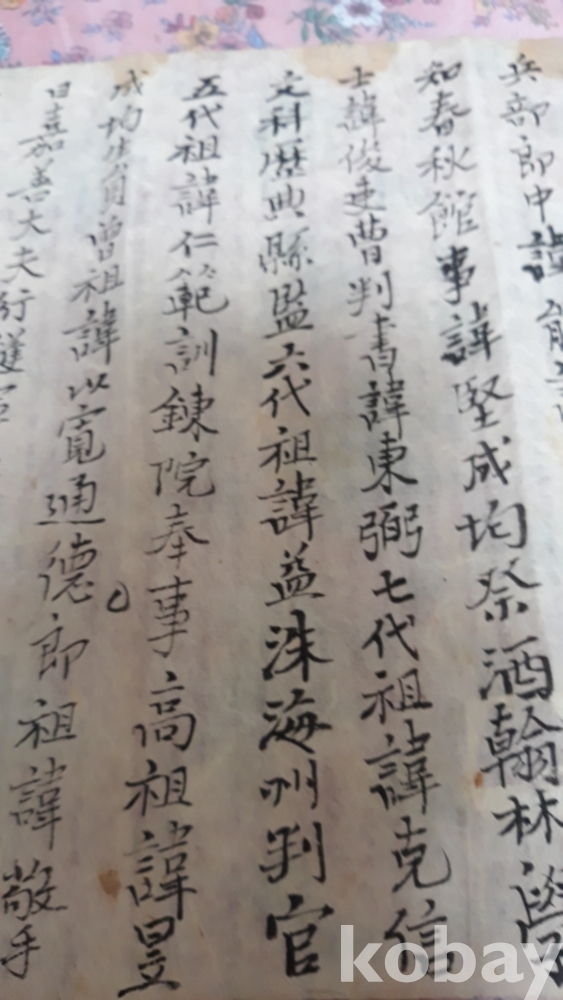 兵部郎中諱
知春秋館事諱堅成均祭酒翰林學
士諱俊連曹判書諱東弼七代祖諱克信
文科歷典縣監六代祖諱益洙海州判官
五代祖諱仁範訓鍊院奉事高祖諱昱
成均生員曾祖諱以寬通德郎祖諱敬手
曰嘉善大夫行護軍
kobay